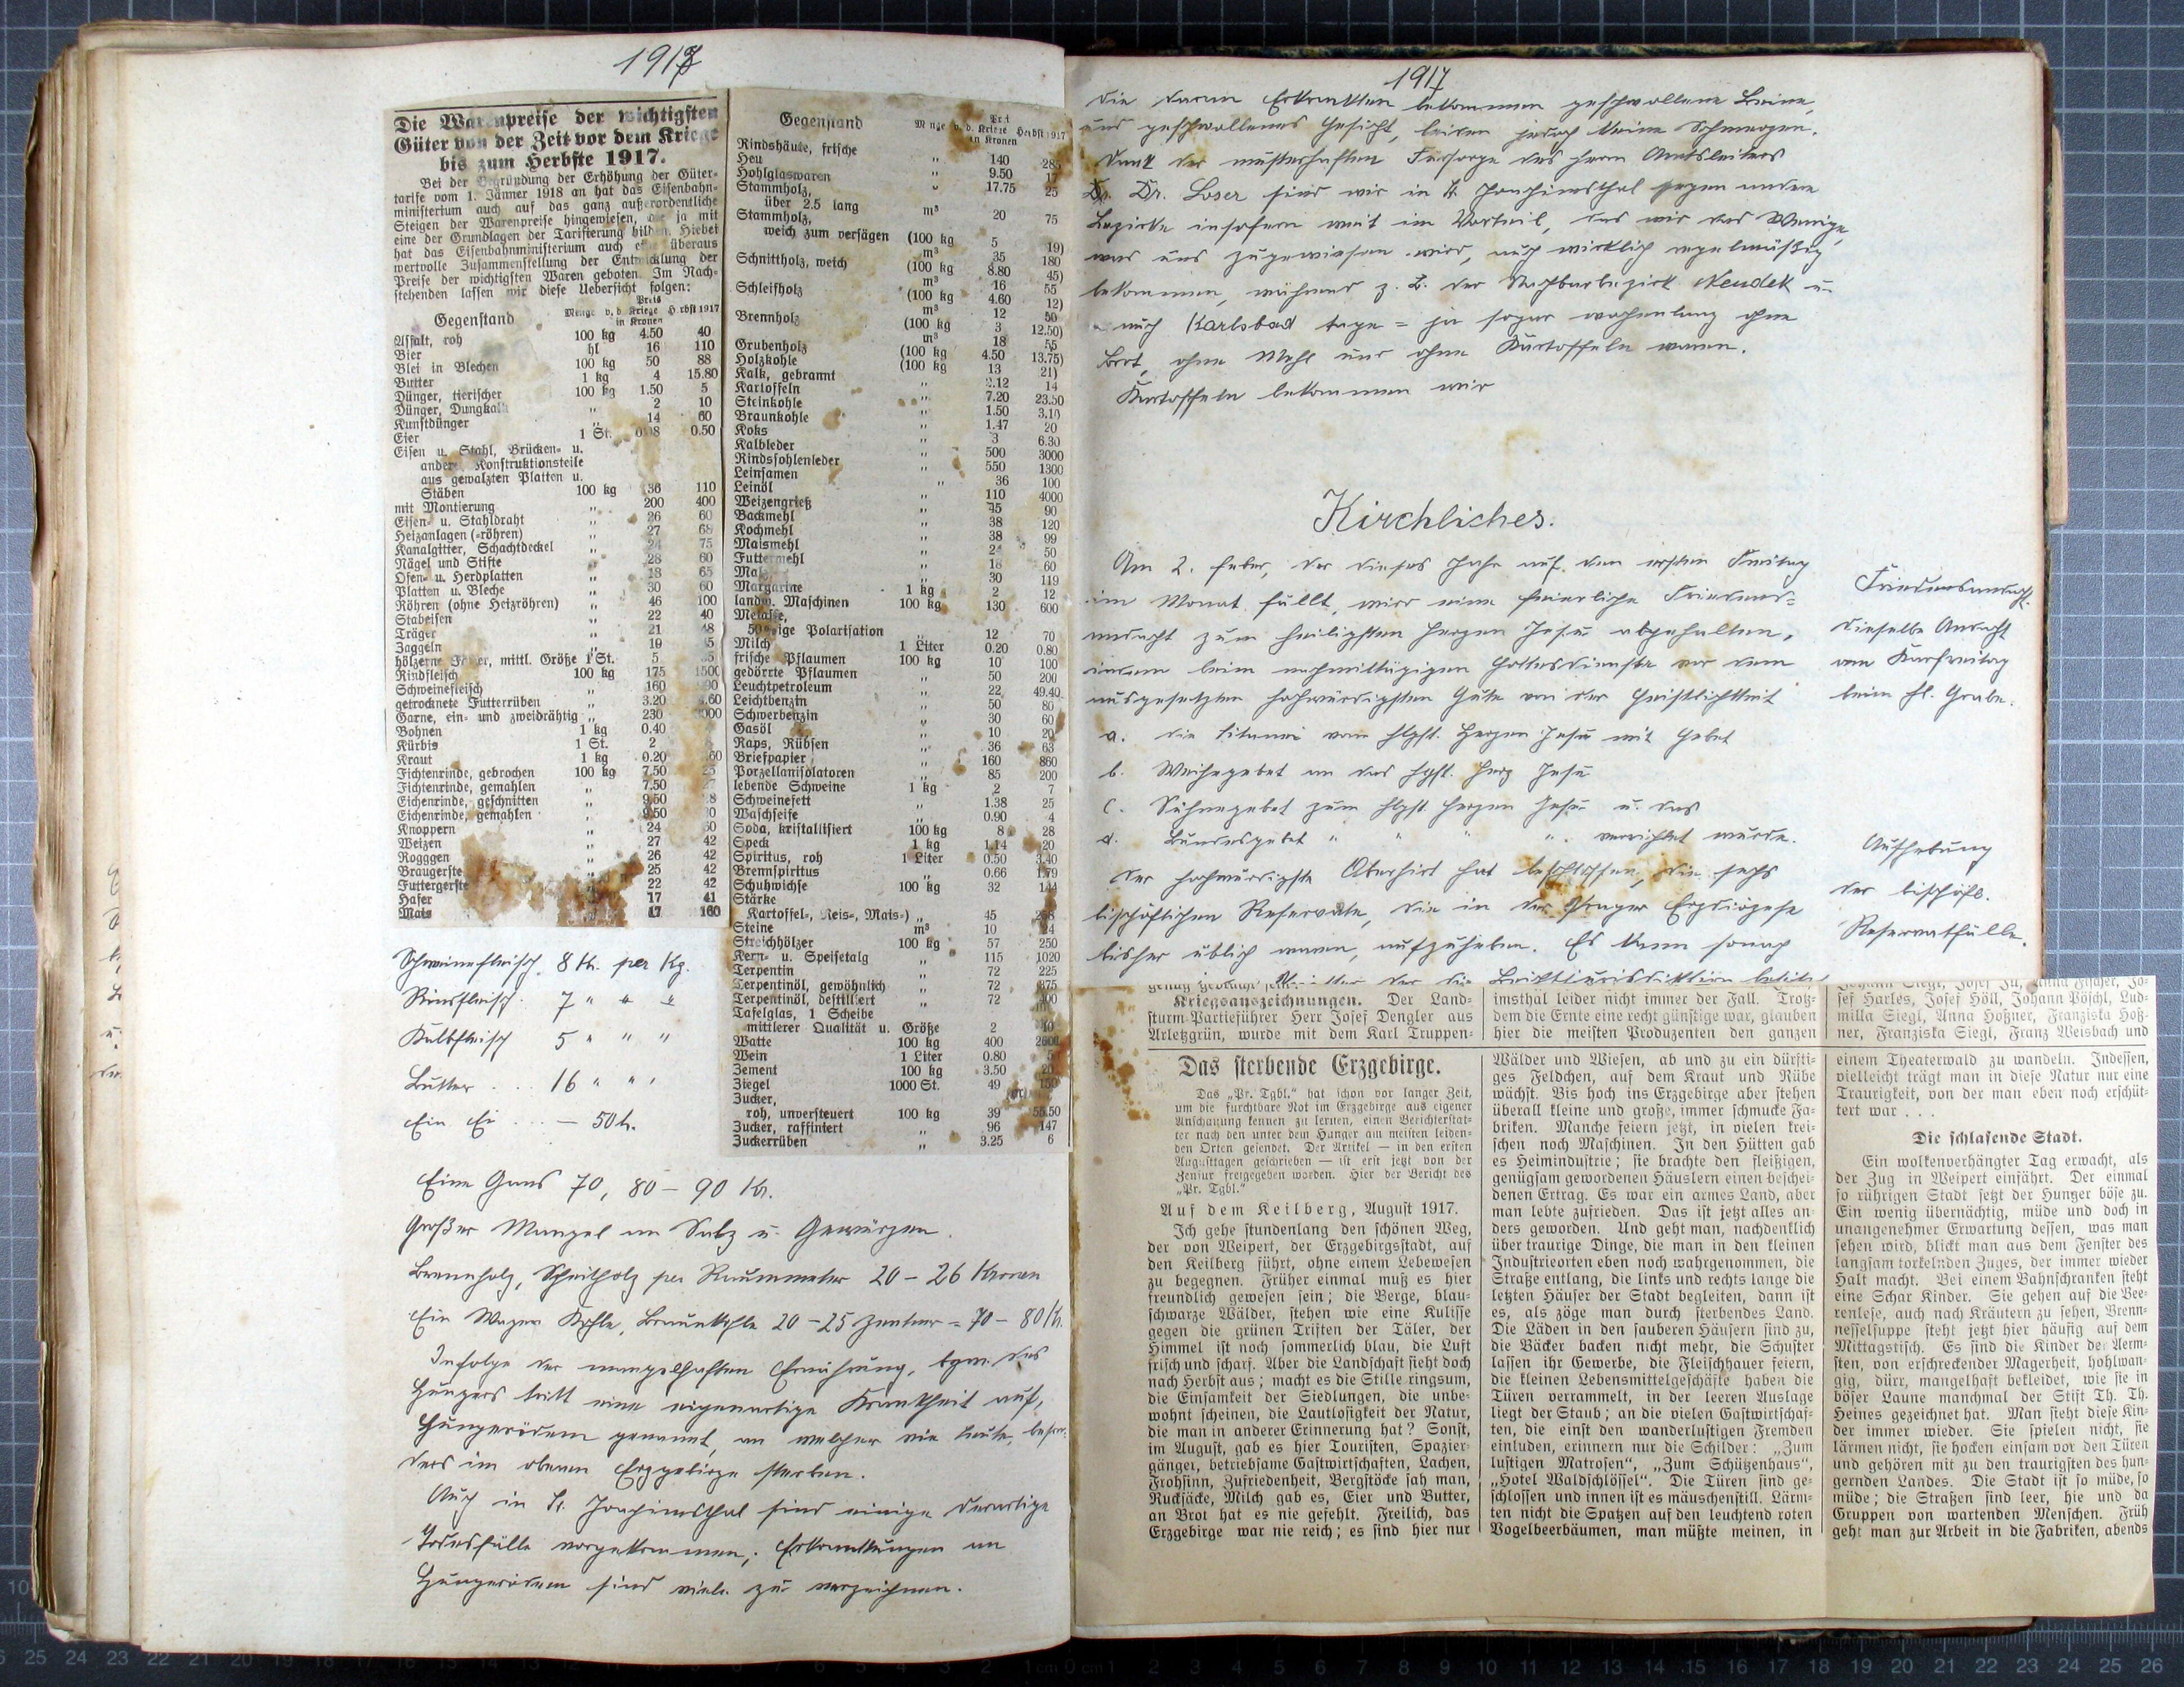 1917
Die Warenpreise der wichtigsten
Güter von der Zeit vor dem Kriege
bis zum Herbste 1917.
Bei der Begründung der Erhöhung der Güter-
tarife vom 1. Jänner 1918 an hat das Eisenbahn-
ministerium auch auf das ganz außerordentliche
Steigen der Warenpreise hingewiesen, die ja mit
eine der Grundlagen der Tarifierung bilden. Hiebei
hat das Eisenbahnministerium auch eine überaus
wertvolle Zusammenstellung der Entwicklung der
Preise der wichtigsten Waren geboten. Im Nach-
stehenden lassen wir diese Uebersicht folgen:
Preis
Gegenstand Menge v. d. Kriege Herbst 1917
in Kronen
Asfalt, roh 100 kg 4.50 40
Bier hl 16 110
Blei in Blechen 100 kg 50 88
Butter 1 kg 4 15.80
Dünger, tierischer 100 kg 1.50 5
Dünger, Dungkalk „ 2 10
Kunstdünger „ 14 60
Eier 1 St. 0.08 0.50
Eisen u. Stahl, Brücken- u.
andere Konstruktionsteile
aus gewalzten Platten u.
Stäben 100 kg 36 110
mit Montierung „ 200 400
Eisen- u. Stahldraht „ 26 60
Heizanlagen (-röhren) „ 27 68
Kanalgitter, Schachtdeckel „ 24 75
Nägel und Stifte „ 28 60
Ofen- u. Herdplatten „ 18 65
Platten u. Bleche „ 30 60
Röhren (ohne Heizröhren) „ 46 100
Stabeisen „ 22 40
Träger „ 21 48
Zaggeln „ 19 45
hölzerne Fässer, mittl. Größe 1 St. 5
Rindfleisch 100 kg 175 1500
Schweinefleisch „ 160
getrocknete Futterrüben „ 3.20
Garne, ein- und zweidrähtig „ 230
Bohnen 1 kg 0.40
Kürbis 1 St. 2
Kraut 1 kg 0.20
Fichtenrinde, gebrochen 100 kg 7.50
Fichtenrinde, gemahlen „ 7.50
Eichenrinde, geschnitten „ 9.50
Eichenrinde, gemahlen „ 9.50
Knoppern „ 24
Weizen „ 27 42
Rogggen „ 26 42
Braugerste „ 25 42
Futtergerste „ 22 42
Hafer „ 17 41
Mais 17 160
Schweinefleisch 8 Kr. per Kg.
Rindfleisch. 7 „ „ „
Kalbfleisch 5 „ „ „
Butter . . . 16 „ „ „
Ein Ei . . . — 50 h.
Eine Gans 70, 80 – 90 Kr.
Großer Mangel an Salz u. Gewürzen.
Brennholz, Scheitholz per Raummeter 20 – 26 Kronen
Ein Wagen Kohle, Braunkohle 20 – 25 Zentner = 70 – 80 Kr.
Infolge der mangelhaften Ernährung, bzw. des
Hungers tritt eine eigenartige Krankheit auf,
Hungerödem genannt, an welcher die Leute, beson-
ders im oberen Erzgebirge sterben.
Auch in St. Joachimsthal sind einige derartige
Todesfälle vorgekommen; Erkrankungen an
Hungerödem sind viele zu verzeichnen.
Preis
Gegenstand Menge v. d. Kriege Herbst 1917
in Kronen
Rindshäute, frische „ 140 285
Heu „ 9.50 17
Hohlglaswaren „ 17.75 25
Stammholz,
über 2.5 lang m³ 20 75
Stammholz,
weich zum versägen (100 kg 5 19)
m³ 35 180
Schnittholz, weich (100 kg 8.80 45)
m³ 16 55
Schleifholz (100 kg 4.60 12)
m³ 12 50
Brennholz (100 kg 3 12.50)
m³ 18 55
Grubenholz (100 kg 4.50 13.75)
Holzkohle (100 kg 13 21)
Kalk, gebrannt „ 2.12 14
Kartoffeln „ 7.20 23.50
Steinkohle „ 1.50 3.10
Braunkohle „ 1.47 20
Koks „ 3 6.30
Kalbleder „ 500 3000
Rindsohlenleder „ 550 1300
Leinsamen „ 36 100
Leinöl „ 110 4000
Weizengrieß „ 45 90
Backmehl „ 38 120
Kochmehl „ 38 99
Maismehl „ 24 50
Futtermehl „ 18 60
Malz „ 30 119
Margarine 1 kg 2 12
landw. Maschinen 100 kg 130 600
Melasse,
50%ige Polarisation „ 12 70
Milch 1 Liter 0.20 0.80
frische Pflaumen 100 kg 10 100
gedörrte Pflaumen „ 50 200
Leuchtpetroleum „ 22 49.40
Leichtbenzin „ 50 80
Schwerbenzin „ 30 60
Gasöl „ 10 20
Raps, Rübsen „ 36 63
Briefpapier „ 160 860
Porzellanisolatoren „ 85 200
lebende Schweine 1 kg 2 7
Schweinefett „ 1.38 25
Waschseife „ 0.90 4
Soda, kristallisiert 100 kg 8 28
Speck 1 kg 1.14 20
Spiritus, roh 1 Liter 0.50 3.40
Brennspiritus „ 0.66 1.79
Schuhwichse 100 kg 32 144
Stärke
Kartoffel-, Reis-, Mais-) „ 45
Steine m³ 10 24
Streichhölzer 100 kg 57 250
Kern- u. Speisetalg „ 115 1020
Terpentin „ 72 225
Terpentinöl, gewöhnlich „ 72 375
Terpentinöl, destilliert „ 72 400
Tafelglas, 1 Scheibe
mittlerer Qualität u. Größe 2 10
Watte 100 kg 400 2600
Wein 1 Liter 0.80 5
Zement 100 kg 3.50 20
Ziegel 1000 St. 49 150
Zucker,
roh, unversteuert 100 kg 39 55.50
Zucker, raffiniert „ 96 147
Zuckerrüben „ 3.25 6
1917
die daran Erkrankten bekommen geschwollene Beine,
und geschwollenes Gesicht, leiden jedoch keine Schmerzen.
Dank der musterhaften Fürsorge des Herrn Amtsleiters
Dr. Loser sind wir in St. Joachimsthal gegen andere
Bezirke insofern weit im Vorteil, das wir das Wenige,
was uns zugewiesen wird, auch wirklich regelmäßig
bekommen, während z. B. der Nachbarbezirk Neudek u.
auch Karlsbad tage = ja sogar wochenlang ohne
Brot, ohne Mehl und ohne Kartoffeln waren.
Kartoffeln bekommen wir
Kirchliches.
Am 2. Feber, der dieses Jahr auf den ersten Freitag
im Monat fällt, wird eine feierliche Friedens-
andacht zum heiligsten Herzen Jesu abgehalten,
indem beim nachmittägigen Gottesdienste vor dem
ausgesetzten hochwürdigsten Gute von der Geistlichkeit
a. die Litanei vom hlgst. Herzen Jesu mit Gebet
b. Weihegebet an das hgst. Herz Jesu
c. Sühnegebet zum hlgst Herzen Jesu u. das
d. Bundesgebet „ „ „ „ verrichtet wurde.
Der hochwürdigste Oberhirt hat beschlossen, die sechs
bischöflichen Reservate, die in der Prager Erzdiözese
bisher üblich waren, aufzuheben. Es kann sonach
Friedensandacht.
Dieselbe Andacht
am Karfreitag
beim hl. Grabe.
Aufhebung
der bischöfl.
Reservatfälle.
Kriegsauszeichnungen. Der Land-
sturm-Partieführer Herr Josef Dengler aus
Arletzgrün, wurde mit dem Karl Truppen-
imsthal leider nicht immer der Fall. Trotz-
dem die Ernte eine recht günstige war, glauben
hier die meisten Produzenten den ganzen
sef Harles, Josef Höll, Johann Pöschl, Lud-
milla Siegl, Anna Hoßner, Franziska Hoß-
ner, Franziska Siegl, Franz Weisbach und
Das sterbende Erzgebirge.
Das „Pr. Tgbl." hat schon vor langer Zeit,
um die furchtbare Not im Erzgebirge aus eigener
Anschauung kennen zu lernen, einen Berichterstat-
ter nach den unter dem Hunger am meisten leiden-
den Orten gesendet. Der Artikel — in den ersten
Augusttagen geschrieben — ist erst jetzt von der
Zensur freigegeben worden. Hier der Bericht des
„Pr. Tgbl."
Auf dem Keilberg, August 1917.
Ich gehe stundenlang den schönen Weg,
der von Weipert, der Erzgebirgsstadt, auf
den Keilberg führt, ohne einem Lebewesen
zu begegnen. Früher einmal muß es hier
freundlich gewesen sein; die Berge, blau-
schwarze Wälder, stehen wie eine Kulisse
gegen die grünen Tristen der Täler, der
Himmel ist noch sommerlich blau, die Luft
frisch und scharf. Aber die Landschaft sieht doch
nach Herbst aus; macht es die Stille ringsum,
die Einsamkeit der Siedlungen, die unbe-
wohnt scheinen, die Lautlosigkeit der Natur,
die man in anderer Erinnerung hat? Sonst,
im August, gab es hier Touristen, Spazier-
gänger, betriebsame Gastwirtschaften, Lachen,
Frohsinn, Zufriedenheit, Bergstöcke sah man,
Rucksäcke, Milch gab es, Eier und Butter,
an Brot hat es nie gefehlt. Freilich, das
Erzgebirge war nie reich; es sind hier nur
Wälder und Wiesen, ab und zu ein dürfti-
ges Feldchen, auf dem Kraut und Rübe
wächst. Bis hoch ins Erzgebirge aber stehen
überall kleine und große, immer schmucke Fa-
briken. Manche feiern jetzt, in vielen krei-
schen noch Maschinen. In den Hütten gab
es Heimindustrie; sie brachte den fleißigen,
genügsam gewordenen Häuslern einen beschei-
denen Ertrag. Es war ein armes Land, aber
man lebte zufrieden. Das ist jetzt alles an-
ders geworden. Und geht man, nachdenklich
über traurige Dinge, die man in den kleinen
Industrieorten eben noch wahrgenommen, die
Straße entlang, die links und rechts lange die
letzten Häuser der Stadt begleiten, dann ist
es, als zöge man durch sterbendes Land.
Die Läden in den sauberen Häusern sind zu,
die Bäcker backen nicht mehr, die Schuster
lassen ihr Gewerbe, die Fleischhauer feiern,
die kleinen Lebensmittelgeschäfte haben die
Türen verrammelt, in der leeren Auslage
liegt der Staub; an die vielen Gastwirtschaf-
ten, die einst den wanderlustigen Fremden
einluden, erinnern nur die Schilder: „Zum
lustigen Matrosen", „Zum Schützenhaus",
„Hotel Waldschlössel". Die Türen sind ge-
schlossen und innen ist es mäuschenstill. Lärm-
ten nicht die Spatzen auf den leuchtend roten
Vogelbeerbäumen, man müßte meinen, in
einem Theaterwald zu wandeln. Indessen,
vielleicht trägt man in diese Natur nur eine
Traurigkeit, von der man eben noch erschüt-
tert war . . .
Die schlafende Stadt.
Ein wolkenverhängter Tag erwacht, als
der Zug in Weipert einfährt. Der einmal
so rührigen Stadt setzt der Hunger böse zu.
Ein wenig übernächtig, müde und doch in
unangenehmer Erwartung dessen, was man
sehen wird, blickt man aus dem Fenster des
langsam torkelnden Zuges, der immer wieder
Halt macht. Bei einem Bahnschranken steht
eine Schar Kinder. Sie gehen auf die Bee-
renlese, auch nach Kräutern zu sehen, Brenn-
nesselsuppe steht jetzt hier häufig auf dem
Mittagstisch. Es sind die Kinder der Aerm-
sten, von erschreckender Magerheit, hohlwan-
gig, dürr, mangelhaft bekleidet, wie sie in
böser Laune manchmal der Stift Th. Th.
Heines gezeichnet hat. Man sieht diese Kin-
der immer wieder. Sie spielen nicht, sie
lärmen nicht, sie hocken einsam vor den Türen
und gehören mit zu den traurigsten des hun-
gernden Landes. Die Stadt ist so müde, so
müde; die Straßen sind leer, hie und da
Gruppen von wartenden Menschen. Früh
geht man zur Arbeit in die Fabriken, abends